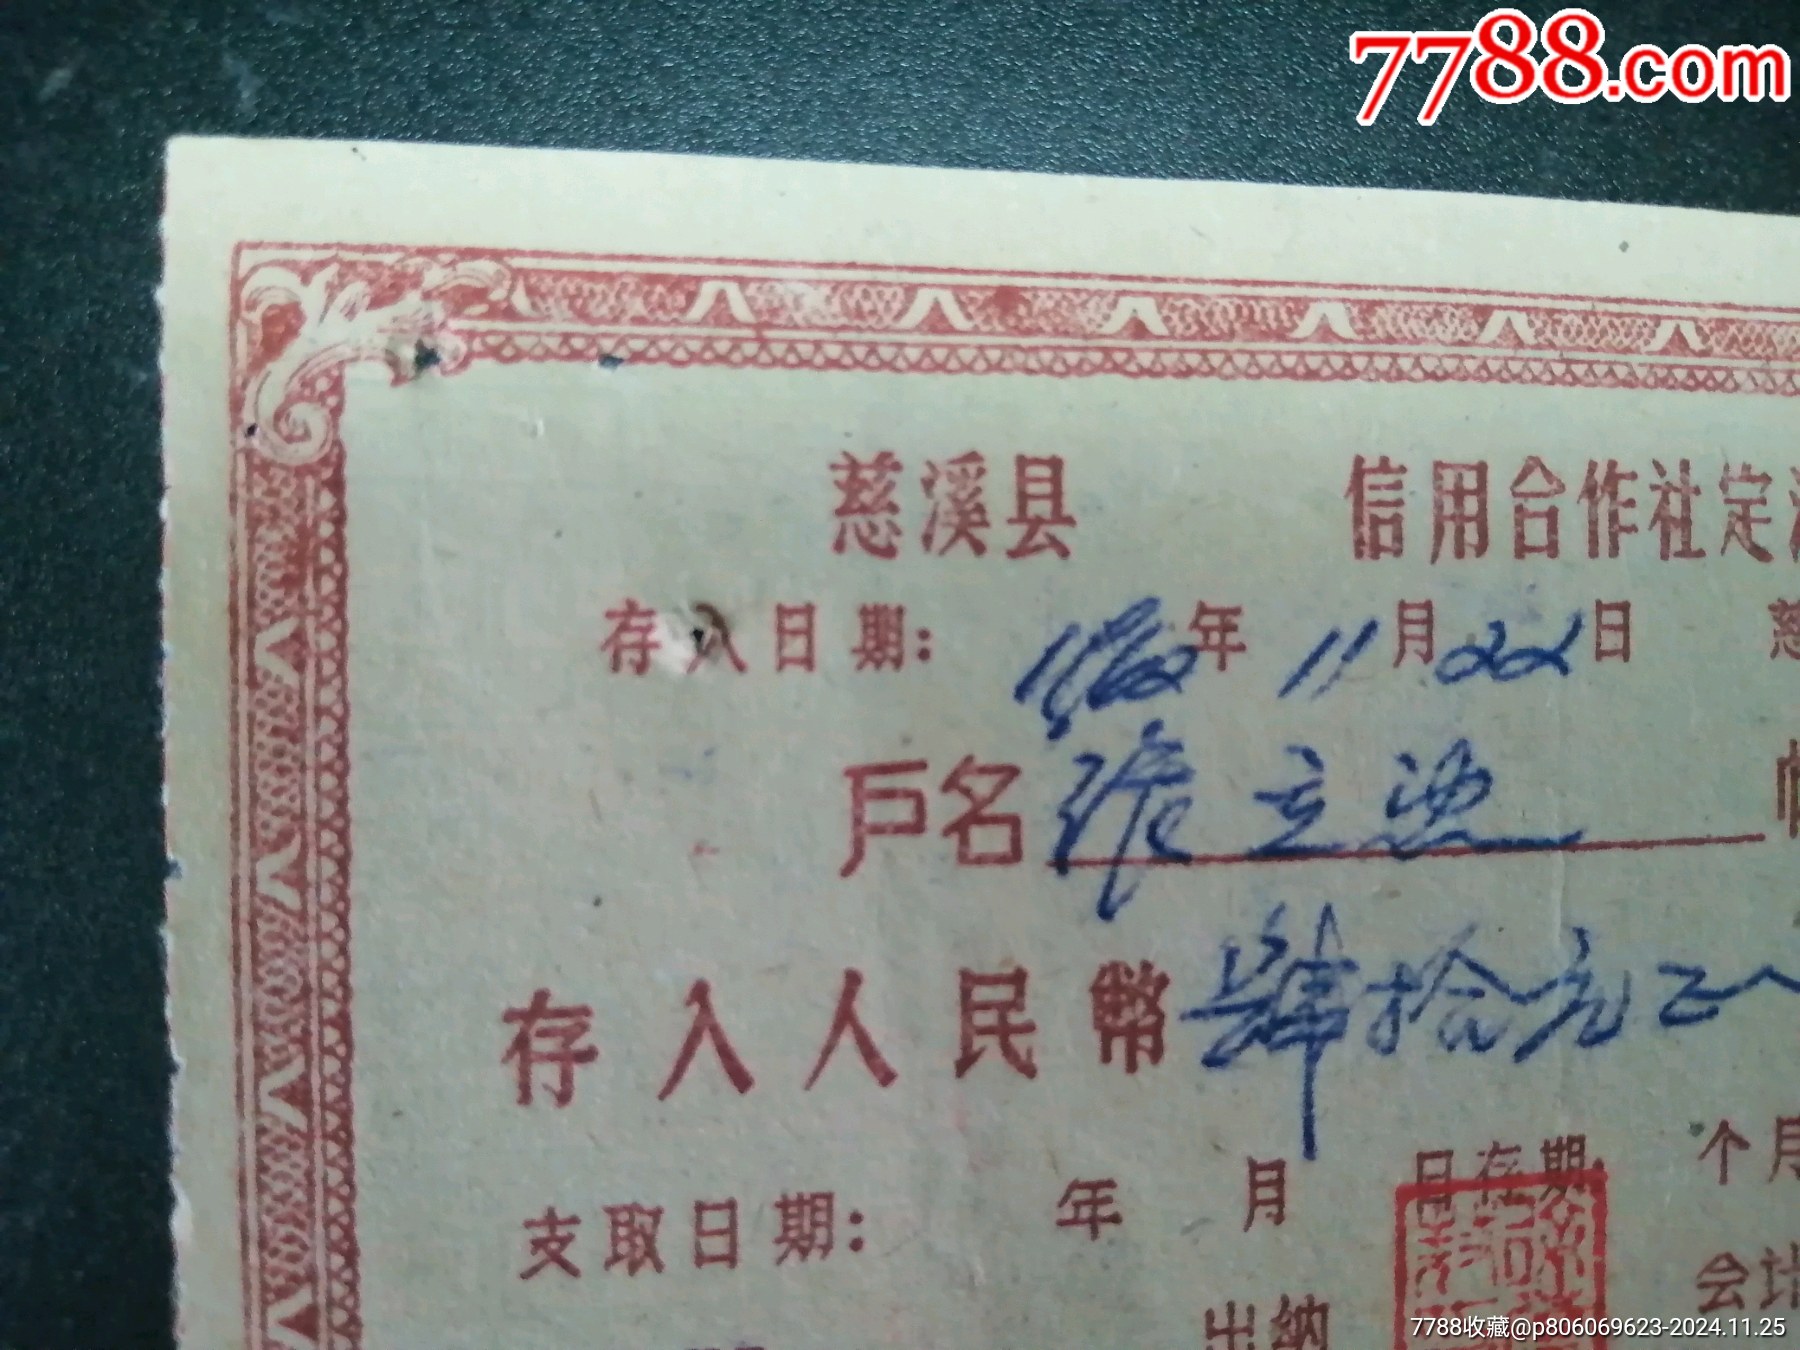 7788.com
慈溪县 信用合作社定
存入日期: 1962年 11月22日
户名 张立
存入人民幣肆拾元正
支取日期: 年 月 日存期 个月
出纳 会计
7788收藏@p806069623-2024.11.25